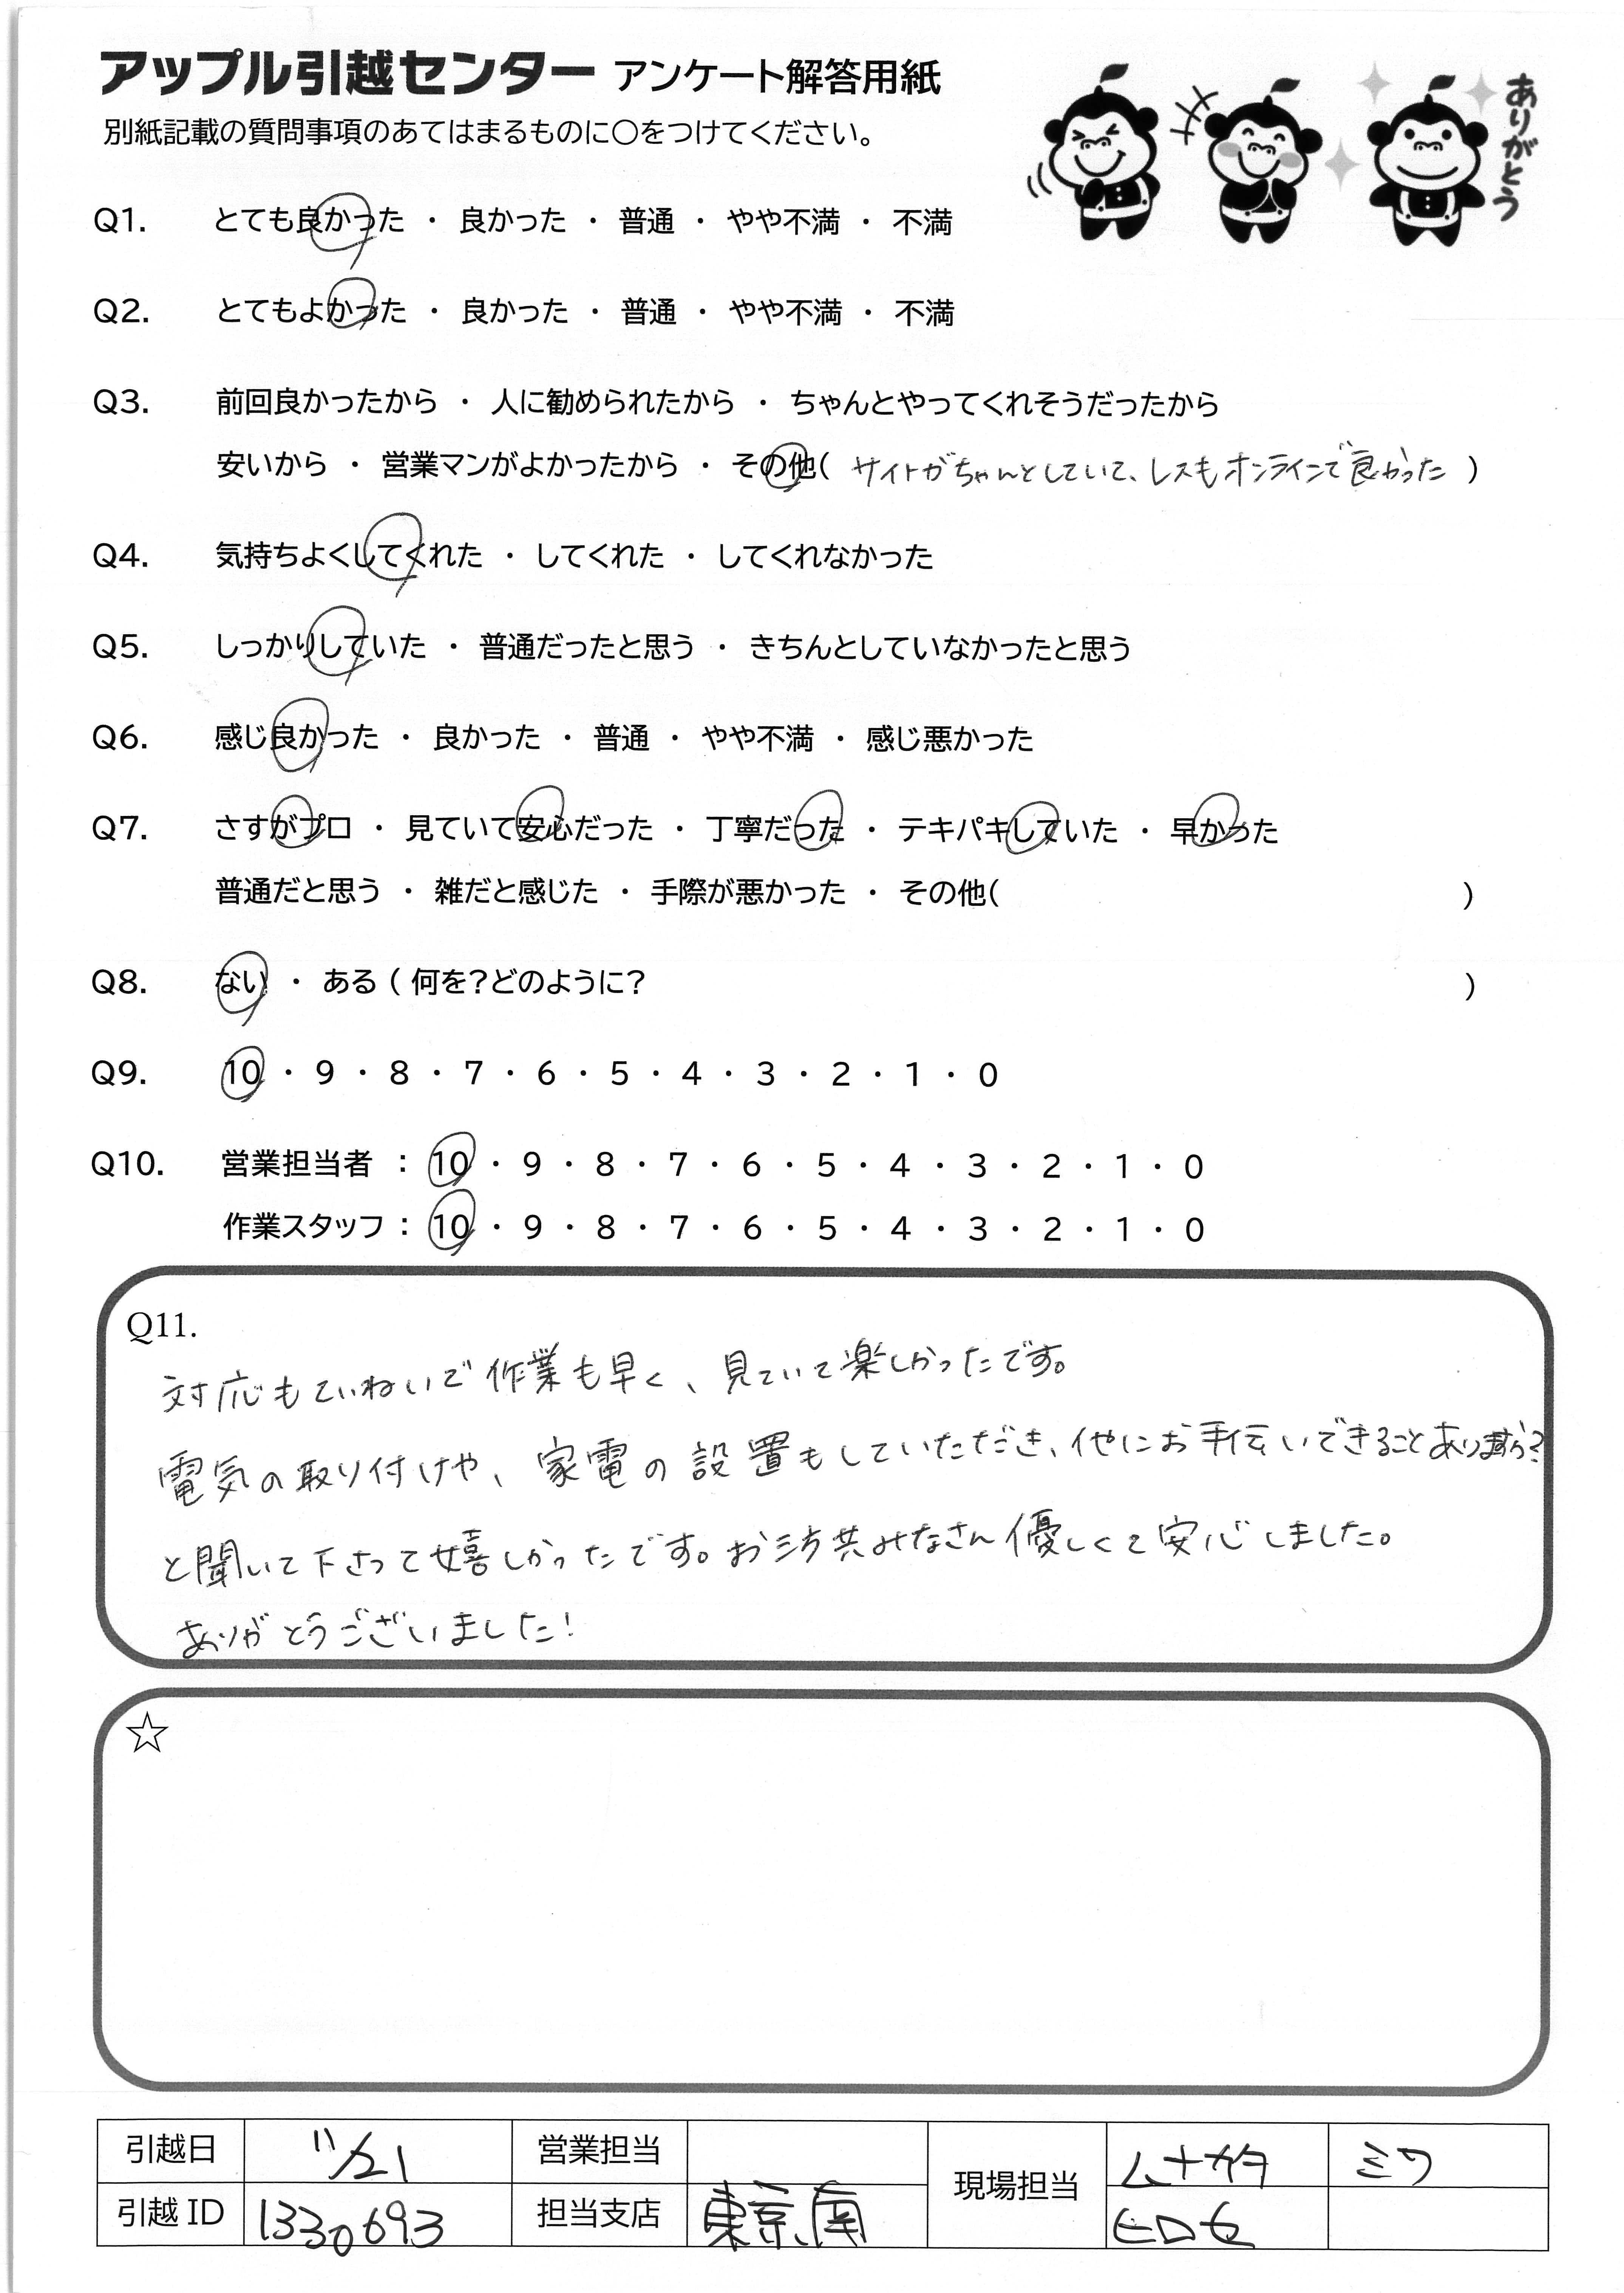 アップル引越センター アンケート解答用紙
ありがとう
別紙記載の質問事項のあてはまるものに○をつけてください。
Q1. とても良かった ・ 良かった ・ 普通 ・ やや不満 ・ 不満
Q2. とてもよかった ・ 良かった ・ 普通 ・ やや不満 ・ 不満
Q3. 前回良かったから ・ 人に勧められたから ・ ちゃんとやってくれそうだったから
安いから ・ 営業マンがよかったから ・ その他( サイトがちゃんとしていて、レスもオンラインで良かった )
Q4. 気持ちよくしてくれた ・ してくれた ・ してくれなかった
Q5. しっかりしていた ・ 普通だったと思う ・ きちんとしていなかったと思う
Q6. 感じ良かった ・ 良かった ・ 普通 ・ やや不満 ・ 感じ悪かった
Q7. さすがプロ ・ 見ていて安心だった ・ 丁寧だった ・ テキパキしていた ・ 早かった
普通だと思う ・ 雑だと感じた ・ 手際が悪かった ・ その他( )
Q8. ない ・ ある ( 何を?どのように? )
Q9. 10 ・ 9 ・ 8 ・ 7 ・ 6 ・ 5 ・ 4 ・ 3 ・ 2 ・ 1 ・ 0
Q10. 営業担当者 : 10 ・ 9 ・ 8 ・ 7 ・ 6 ・ 5 ・ 4 ・ 3 ・ 2 ・ 1 ・ 0
作業スタッフ : 10 ・ 9 ・ 8 ・ 7 ・ 6 ・ 5 ・ 4 ・ 3 ・ 2 ・ 1 ・ 0
Q11.
対応もていねいで作業も早く、見ていて楽しかったです。
電気の取り付けや、家電の設置もしていただき、他にお手伝いできることありますか?
と聞いて下さって嬉しかったです。お三方共みなさん優しくて安心しました。
ありがとうございました!
☆
引越日 11/21 営業担当 現場担当 ムナカタ ミワ
引越ID 1330693 担当支店 東京南 ヒロセ